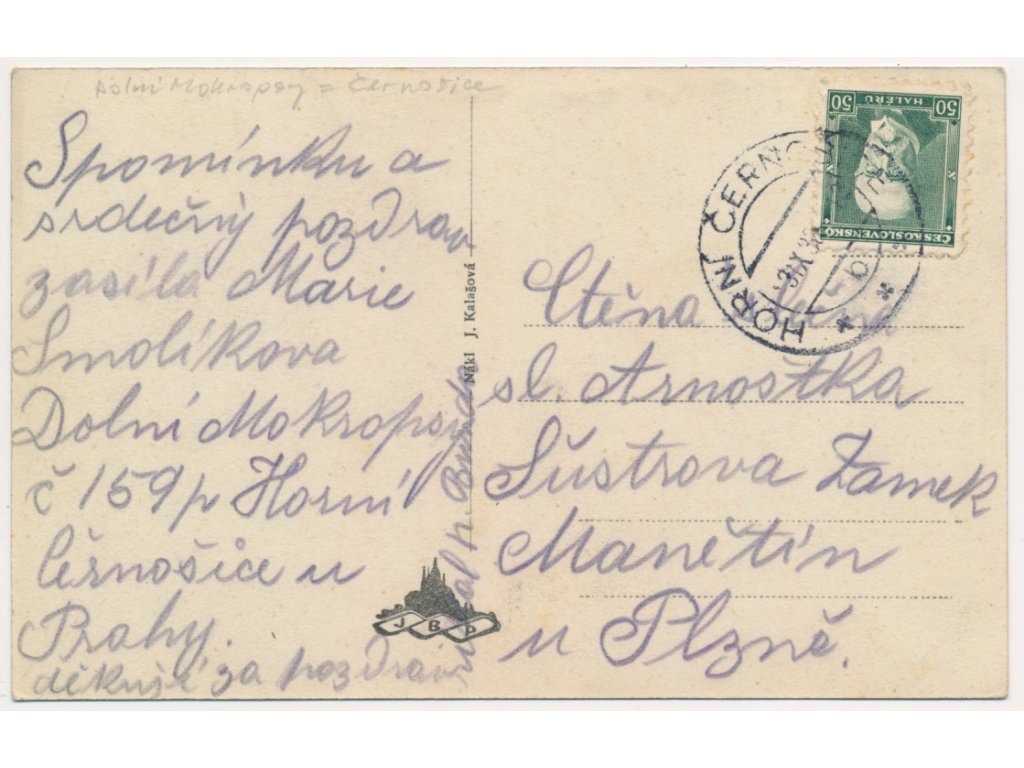 Dolní Mokropsy = Černošice
Spomínku a
srdečný pozdrav
zasíla Marie
Smolíkova
Dolní Mokropsy
č 159 p Horní
Černošice u
Prahy.
děkuji za pozdrav
Nákl J. Kalašová
JBP
50 HALÉŘŮ 50
ČESKOSLOVENSKO
HORNÍ ČERNOŠ
IX 3
Ctěna slečna
sl. Arnoštka
Šůstrova Zamek
Manětín
u Plzně.